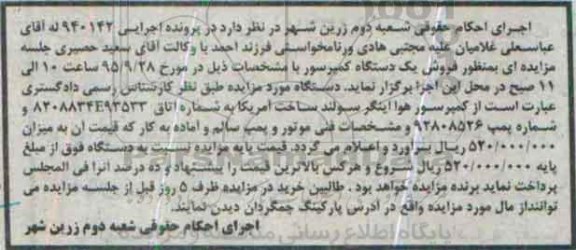 اجرای احکام حقوقی شعبه دوم زرین شهر در نظر دارد در پرونده اجرایی ۹۴۰۱۴۲ له آقای
عباسعلی غلامیان علیه مجتبی هادی ورنامخواستی فرزند احمد با وکالت آقای سعید حصیری جلسه
مزایده ای بمنظور فروش یک دستگاه کمپرسور با مشخصات ذیل در مورخ ۹۵/۹/۲۸ ساعت ۱۰ الی
۱۱ صبح در محل این اجرا برگزار نماید. دستگاه مورد مزایده طبق نظر کارشناس رسمی دادگستری
عبارت است از کمپرسور هوا اینگر سولند ساخت آمریکا به شماره اتاق ۸۲۰۸۸۳۴E۹۳۵۳۳ و
شماره پمپ ۹۳۸۰۸۵۲۶ و مشخصات فنی موتور و پمپ سالم و اماده به کار که قیمت ان به میزان
۵۲۰/۰۰۰/۰۰۰ ریال برآورد و اعلام می گردد. قیمت پایه مزایده نسبت به دستگاه فوق از مبلغ
پایه ۵۲۰/۰۰۰/۰۰۰ ریال شروع و هرکس بالاترین قیمت را پیشنهاد و ده درصد انرا فی المجلس
پرداخت نماید برنده مزایده خواهد بود. طالبین خرید در مزایده ظرف ۵ روز قبل از جلسه مزایده می
توانند از مال مورد مزایده واقع در آدرس پارکینگ چمگردان دیدن نمایند.
اجرای احکام حقوقی شعبه دوم زرین شهر